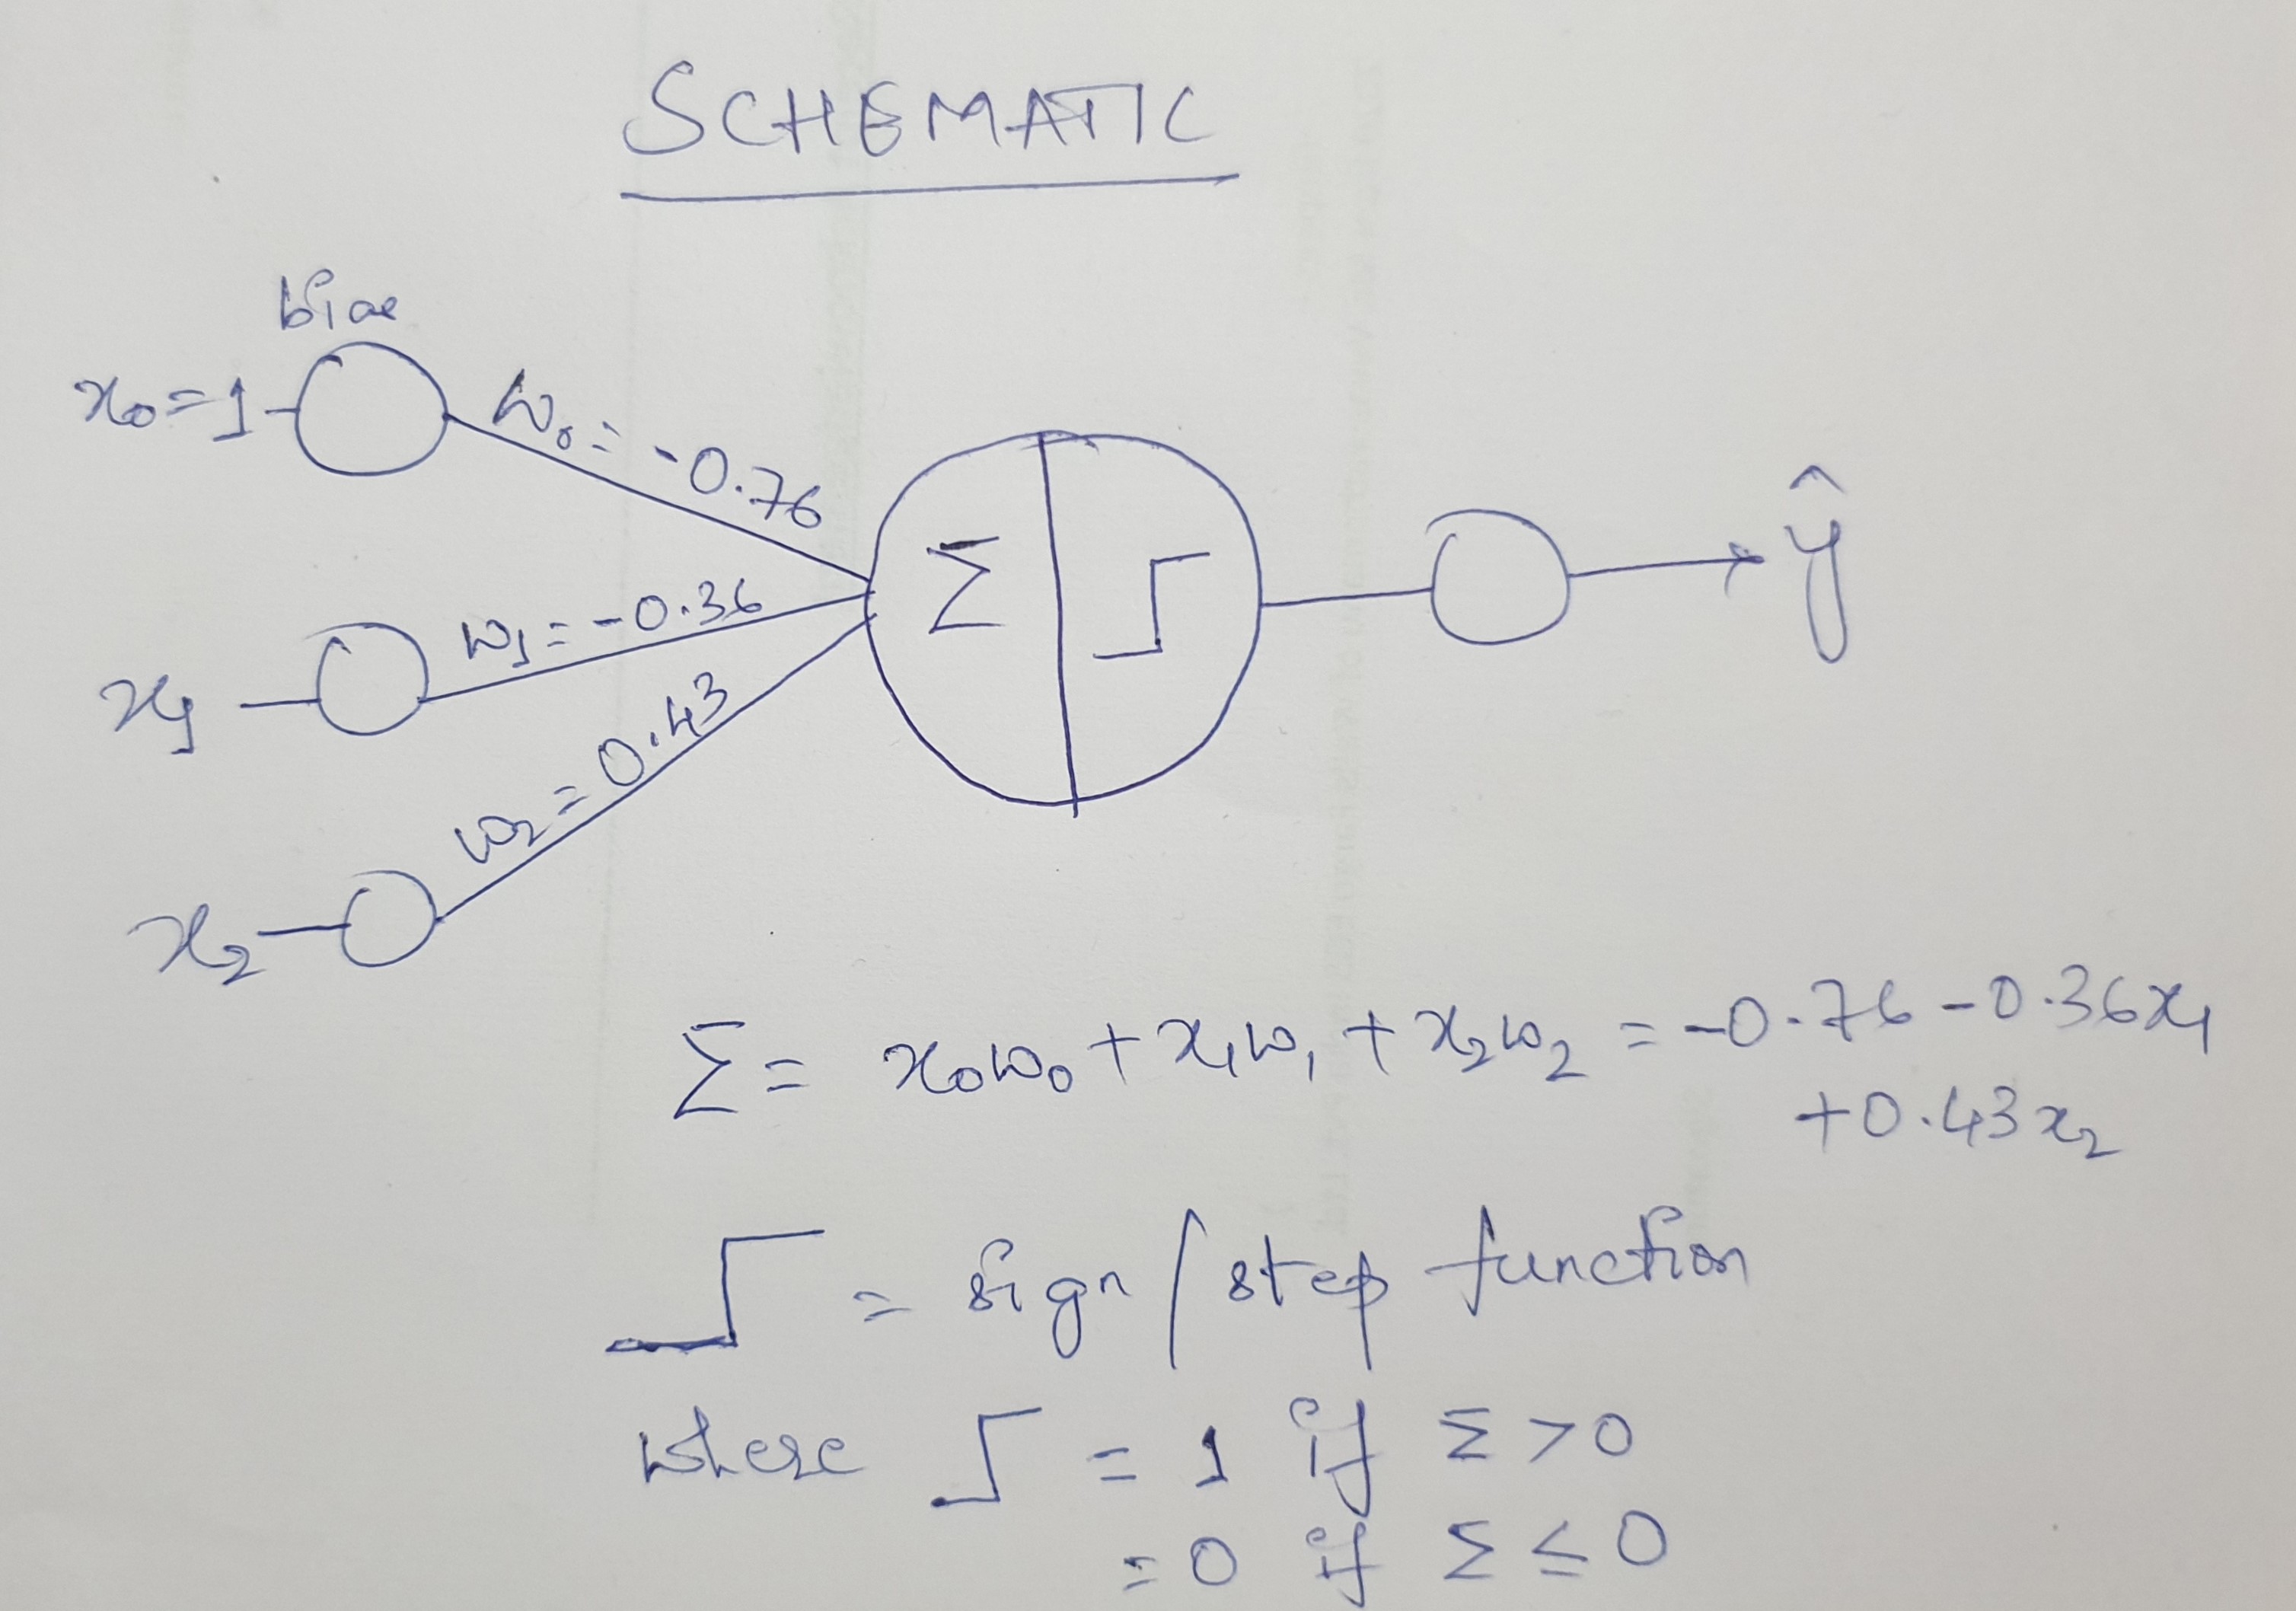 SCHEMATIC
bias
x₀=1
w₀=-0.76
x₁
w₁=-0.36
x₂
w₂=0.43
Σ
ŷ
Σ= x₀w₀+x₁w₁+x₂w₂ = -0.76-0.36x₁
+0.43x₂
= sign/step function
where = 1 if Σ>0
=0 if Σ≤0